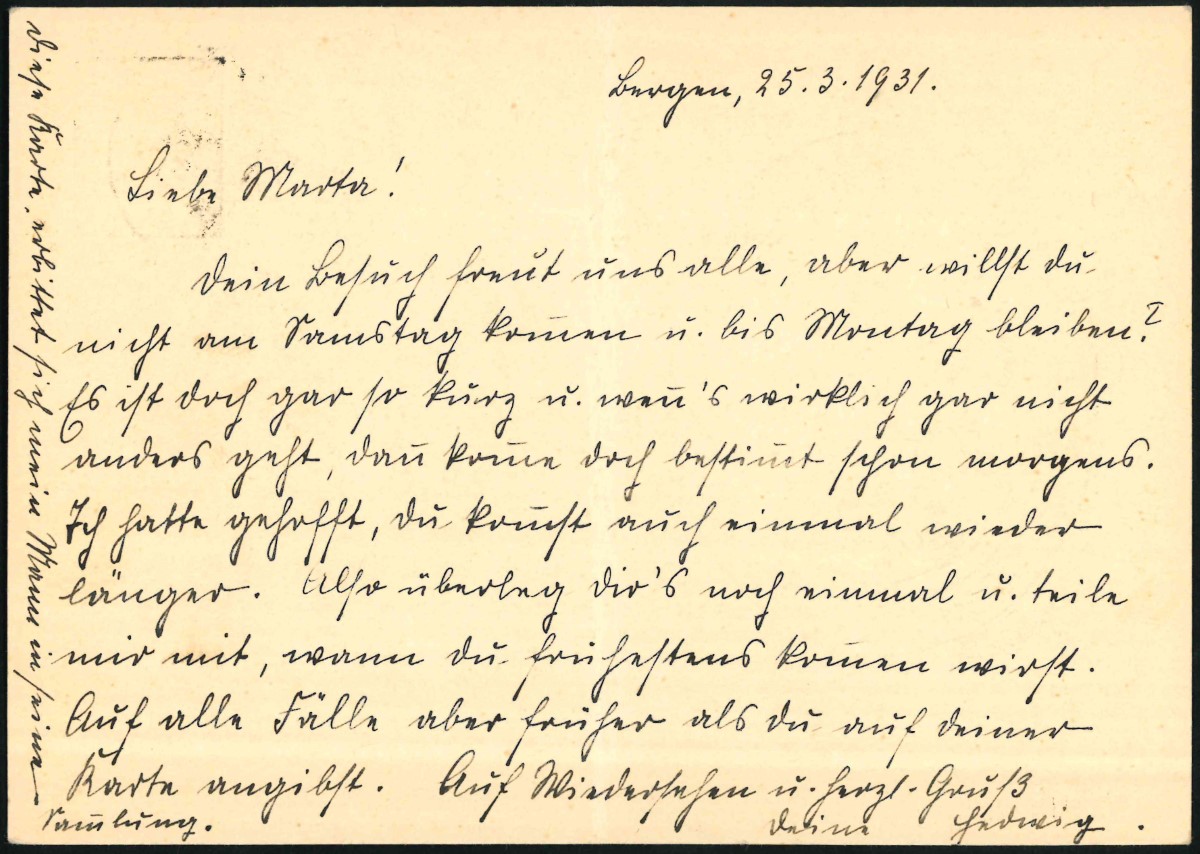 Bergen, 25.3.1931.
Liebe Marta!
Dein Besuch freut uns alle, aber willst du
nicht am Samstag kom̄en u. bis Montag bleiben?
Es ist doch gar so kurz u. wen̄'s wirklich gar nicht
anders geht, dan̄ kom̄e doch bestim̄t schon morgens.
Ich hatte gehofft, du kom̄st auch einmal wieder
länger. Also überleg dir's noch einmal u. teile
mir mit, wann du frühestens kom̄en wirst.
Auf alle Fälle aber früher als du auf deiner
Karte angibst. Auf Wiedersehen u. herzl. Gruß
deine Hedwig.
Diese Karte erbittet sich mein Mann in seine
Sam̄lung.